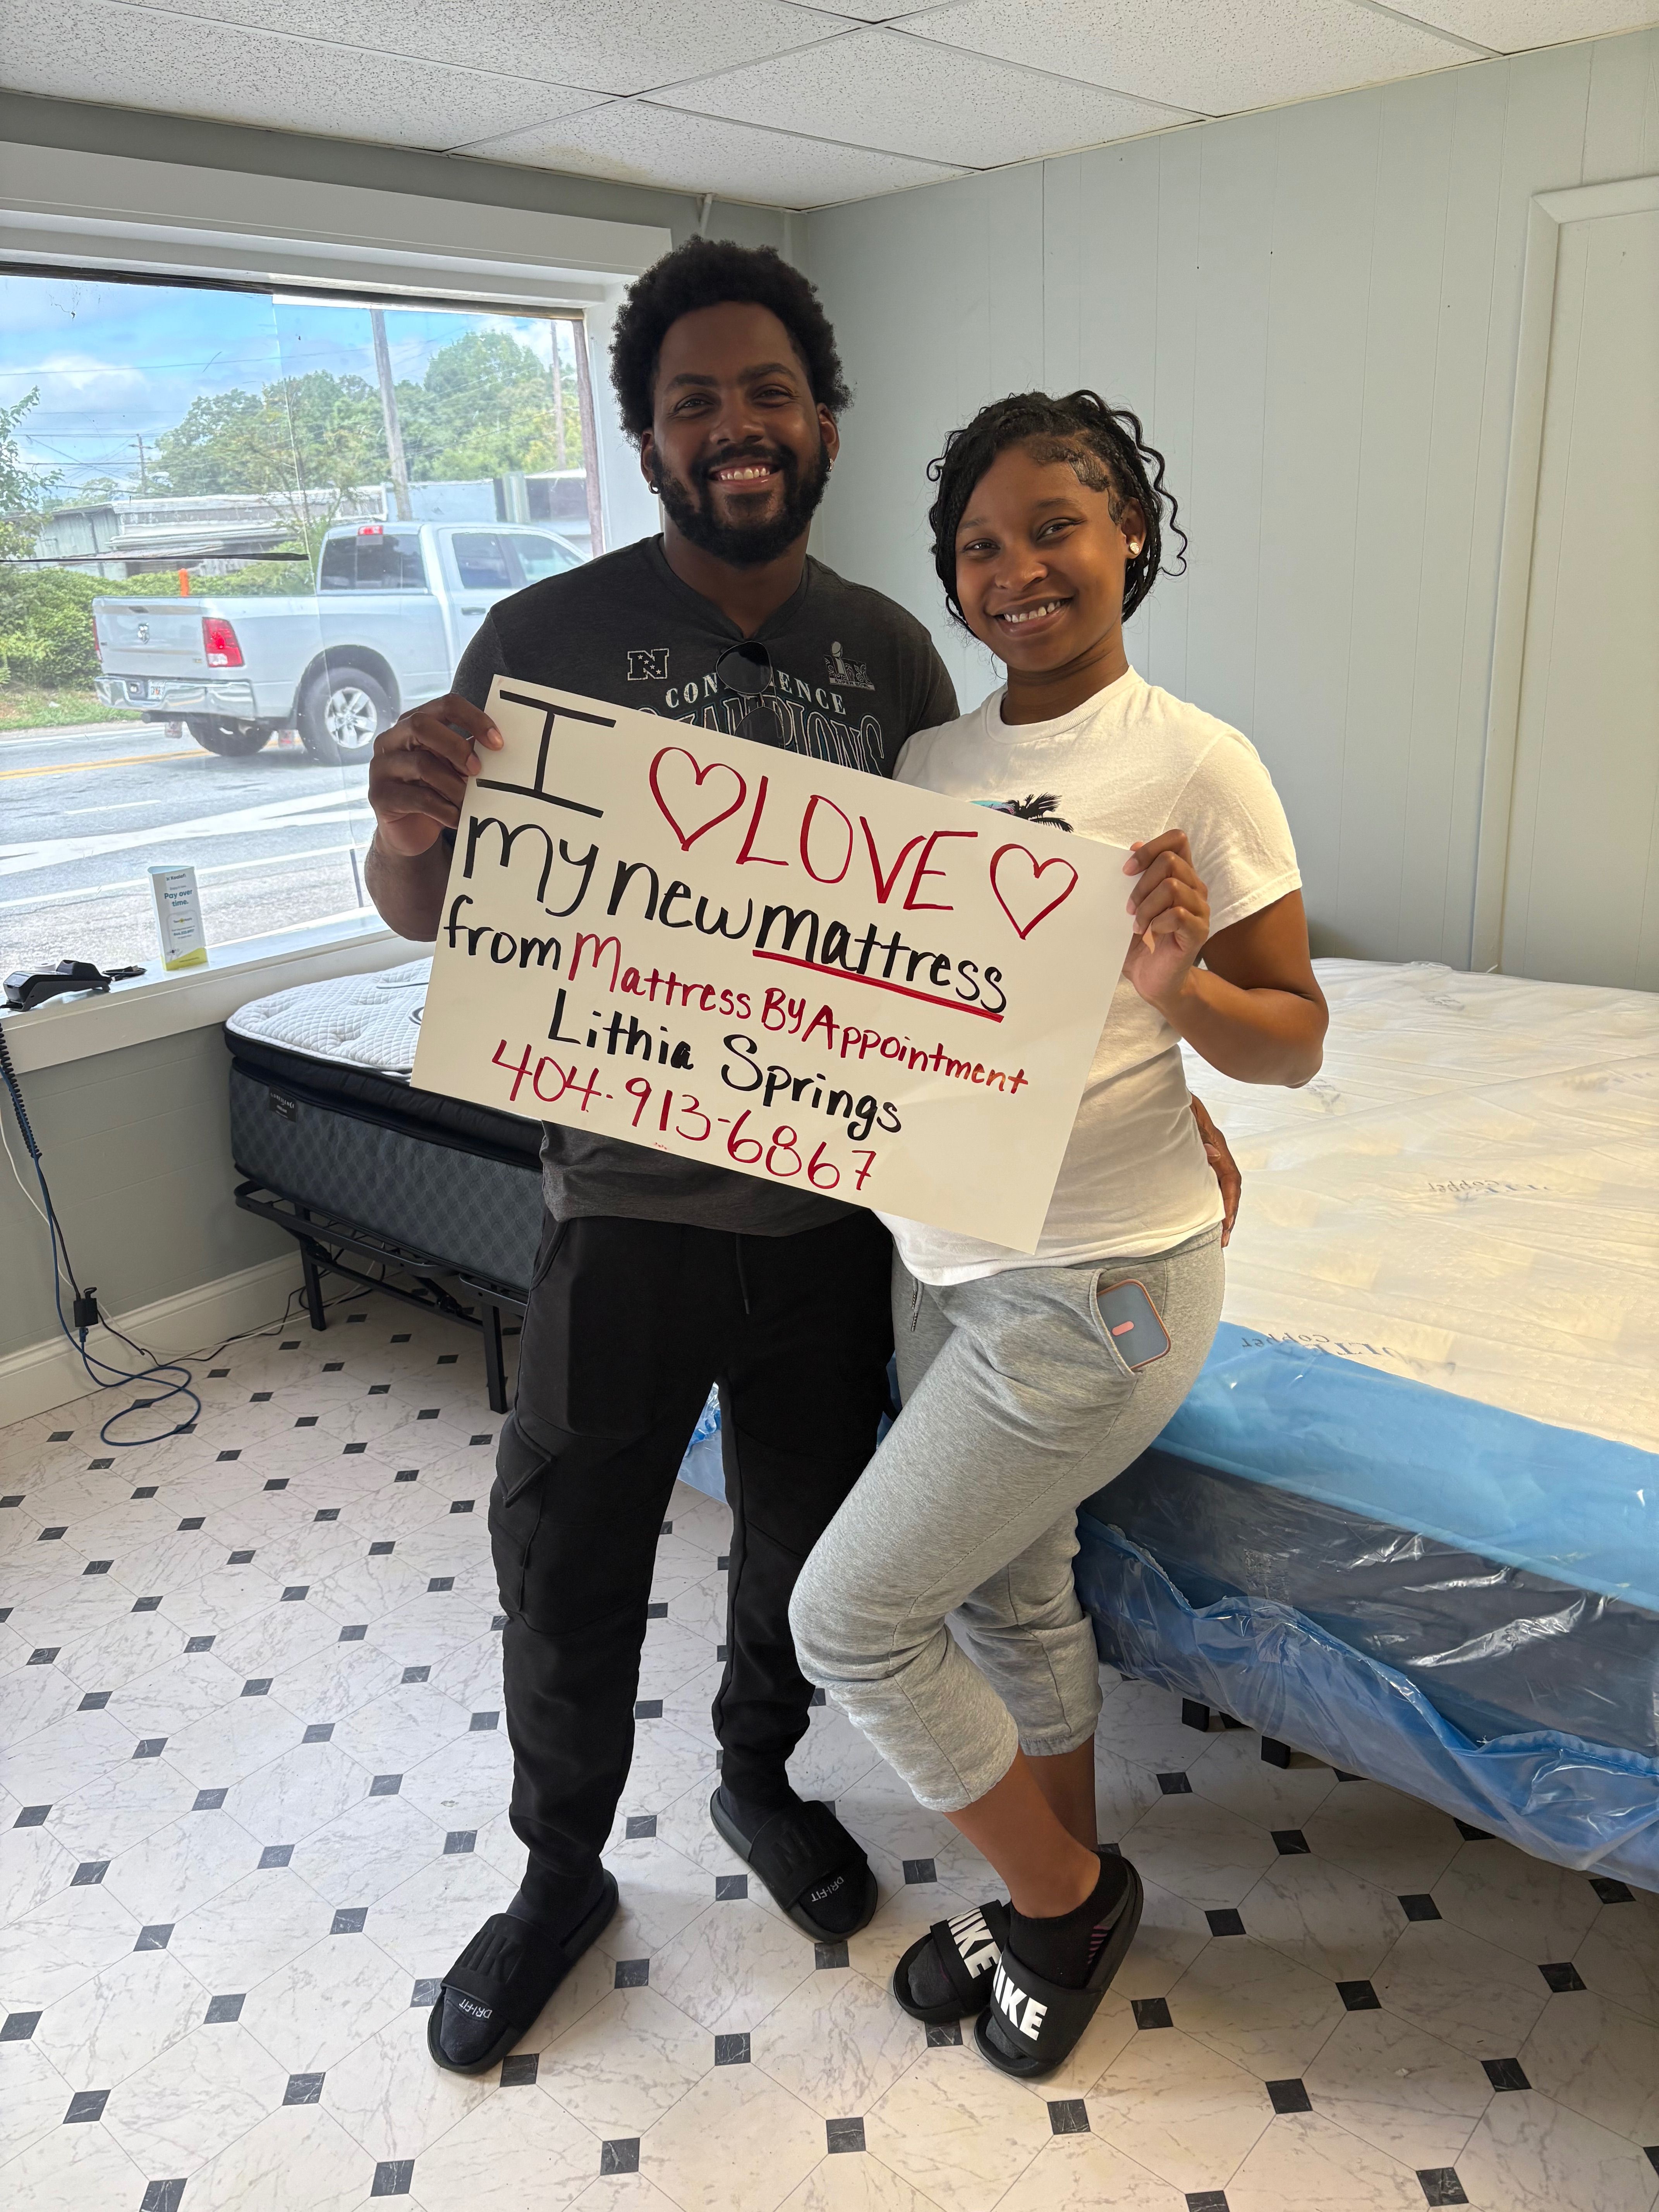 I LOVE
my new mattress
from Mattress By Appointment
Lithia Springs
404-913-6867
N
CON ENCE
Pay over
time.
Copper
Copper
DRI-FIT
DRI-FIT
NIKE
NIKE